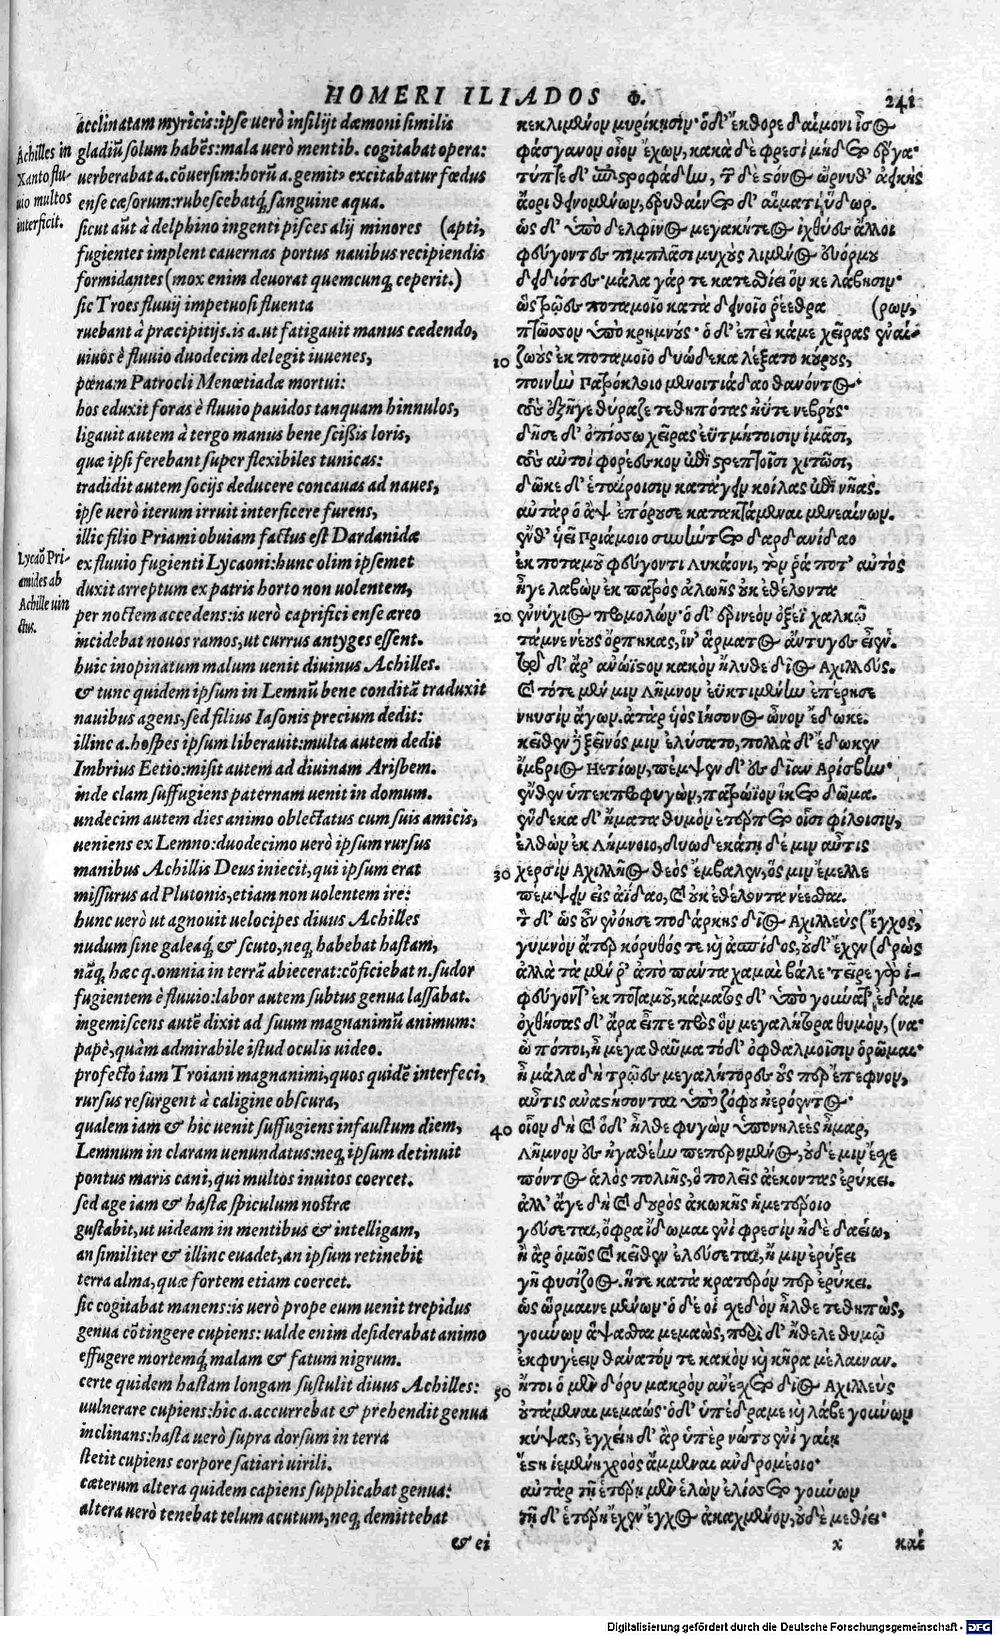 HOMERI ILIADOS Φ. 241
acclinatam myricis: ipse uerò insilijt dæmoni similis
gladiũ solum habẽs: mala uerò mentib. cogitabat opera:
uerberabat a. cõuersim: horũ a. gemitꝰ excitabatur fœdus
ense cæsorum: rubescebatq́; sanguine aqua.
sicut aũt à delphino ingenti pisces alij minores (apti,
fugientes implent cauernas portus nauibus recipiendis
formidantes (mox enim deuorat quemcunq; ceperit.)
sic Troes fluuij impetuosi fluenta
ruebant à præcipitijs. is a. ut fatigauit manus cædendo,
uiuos è fluuio duodecim delegit iuuenes,
pœnam Patrocli Menœtiadæ mortui:
hos eduxit foras è fluuio pauidos tanquam hinnulos,
ligauit autem à tergo manus bene scißis loris,
quæ ipsi ferebant super flexibiles tunicas:
tradidit autem socijs deducere concauas ad naues,
ipse uerò iterum irruit interficere furens,
illic filio Priami obuiam factus est Dardanidæ
ex fluuio fugienti Lycaoni: hunc olim ipsemet
duxit arreptum ex patris horto non uolentem,
per noctem accedens: is uerò caprifici ense æreo
incidebat nouos ramos, ut currus antyges essent.
huic inopinatum malum uenit diuinus Achilles.
& tunc quidem ipsum in Lemnũ bene conditã traduxit
nauibus agens, sed filius Iasonis precium dedit:
illinc a. hospes ipsum liberauit: multa autem dedit
Imbrius Eetio: misit autem ad diuinam Arisbem.
inde clam suffugiens paternam uenit in domum.
undecim autem dies animo oblectatus cum suis amicis,
ueniens ex Lemno: duodecimo uerò ipsum rursus
manibus Achillis Deus iniecit, qui ipsum erat
missurus ad Plutonis, etiam non uolentem ire:
hunc uerò ut agnouit uelocipes diuus Achilles
nudum sine galeaq́; & scuto, neq; habebat hastam,
nãq; hæc q. omnia in terrã abiecerat: cõficiebat n. sudor
fugientem è fluuio: labor autem subtus genua lassabat.
ingemiscens autẽ dixit ad suum magnanimũ animum:
papè, quàm admirabile istud oculis uideo.
profecto iam Troiani magnanimi, quos quidẽ interfeci,
rursus resurgent à caligine obscura,
qualem iam & hic uenit suffugiens infaustum diem,
Lemnum in claram uenundatus: neq; ipsum detinuit
pontus maris cani, qui multos inuitos coercet.
sed age iam & hastæ spiculum nostræ
gustabit, ut uideam in mentibus & intelligam,
an similiter & illinc euadet, an ipsum retinebit
terra alma, quæ fortem etiam coercet.
sic cogitabat manens: is uerò prope eum uenit trepidus
genua cõtingere cupiens: ualde enim desiderabat animo
effugere mortemq́; malam & fatum nigrum.
certe quidem hastam longam sustulit diuus Achilles:
uulnerare cupiens: hic a. accurrebat & prehendit genua
inclinans: hasta uerò supra dorsum in terra
stetit cupiens corpore satiari uirili.
cæterum altera quidem capiens supplicabat genua:
altera uerò tenebat telum acutum, neq; demittebat
& ei
Achilles in
Xanto flu-
uio multos
interficit.
Lycaõ Pri-
amides ab
Achille uin
ctus.
κεκλιμένον μυρίκῃσιν· ὁ δ' ἔκθορε δαίμονι ἶσος
φάσγανον οἶον ἔχων, κακὰ δὲ φρεσὶ μήδετο ἔργα·
τύπτε δ' ἐπιστροφάδην, τῶν δὲ στόνος ὤρνυτ' ἀεικὴς
ἄορι θεινομένων, ἐρυθαίνετο δ' αἵματι ὕδωρ.
ὡς δ' ὑπὸ δελφῖνος μεγακήτεος ἰχθύες ἄλλοι
φεύγοντες πιμπλᾶσι μυχοὺς λιμένος εὐόρμου
δειδιότες· μάλα γάρ τε κατεσθίει ὅν κε λάβησιν·
ὣς τρῶες ποταμοῖο κατὰ δεινοῖο ῥέεθρα (ρων,
πτῶσσον ὑπὸ κρημνούς· ὁ δ' ἐπεὶ κάμε χεῖρας ἐναί-
10 ζωοὺς ἐκ ποταμοῖο δυώδεκα λέξατο κούρους,
ποινὴν Πατρόκλοιο μενοιτιάδαο θανόντος·
τοὺς ἐξῆγε θύραζε τεθηπότας ἠΰτε νεβρούς·
δῆσε δ' ὀπίσσω χεῖρας ἐϋτμήτοισιν ἱμᾶσι,
τοὺς αὐτοὶ φορέεσκον ἐπὶ στρεπτοῖσι χιτῶσι,
δῶκε δ' ἑταίροισιν κατάγειν κοίλας ἐπὶ νῆας.
αὐτὰρ ὁ ἂψ ἐπόρουσε κατακτάμεναι μενεαίνων.
ἔνθ' υἷϊ Πριάμοιο συνήντετο δαρδανίδαο
ἐκ ποταμοῦ φεύγοντι Λυκάονι, τόν ῥά ποτ' αὐτὸς
ἦγε λαβὼν ἐκ πατρὸς ἀλωῆς οὐκ ἐθέλοντα
20 ἐννύχιος προμολών· ὁ δ' ἐρινεὸν ὀξέϊ χαλκῷ
τάμνε νέους ὄρπηκας, ἵν' ἅρματος ἄντυγες εἶεν.
τῷ δ' ἄρ' ἀνώϊστον κακὸν ἤλυθε δῖος Ἀχιλλεύς.
καὶ τότε μέν μιν Λῆμνον ἐϋκτιμένην ἐπέρησε
νηυσὶν ἄγων. ἀτὰρ υἱὸς Ἰήσονος ὦνον ἔδωκε.
κεῖθεν δὲ ξεῖνός μιν ἐλύσατο, πολλὰ δ' ἔδωκεν
ἴμβριος Ἠετίων, πέμψεν δ' ἐς δῖαν Ἀρίσβην·
ἔνθεν ὑπεκπροφυγὼν, πατρώϊον ἵκετο δῶμα.
ἕνδεκα δ' ἤματα θυμὸν ἐτέρπετο οἷσι φίλοισιν,
ἐλθὼν ἐκ Λήμνοιο, δυωδεκάτῃ δέ μιν αὖτις
30 χερσὶν Ἀχιλλῆος θεὸς ἔμβαλεν, ὅς μιν ἔμελλε
πέμψειν εἰς ἀΐδαο, καὶ οὐκ ἐθέλοντα νέεσθαι.
τὸν δ' ὡς οὖν ἐνόησε ποδάρκης δῖος Ἀχιλλεὺς (ἔγχος,
γυμνὸν ἄτερ κόρυθός τε καὶ ἀσπίδος, οὐδ' ἔχεν (δρὼς
ἀλλὰ τὰ μέν ῥ' ἀπὸ πάντα χαμαὶ βάλε· τεῖρε γὰρ ἱ-
φεύγοντ' ἐκ ποταμοῦ, κάματος δ' ὑπὸ γούνατ' ἐδάμ
ὀχθήσας δ' ἄρα εἶπε πρὸς ὃν μεγαλήτορα θυμόν, (να·
ὢ πόποι, ἦ μέγα θαῦμα τόδ' ὀφθαλμοῖσιν ὁρῶμαι·
ἦ μάλα δὴ τρῶες μεγαλήτορες οὕς περ ἔπεφνον,
αὖτις ἀναστήσονται ὑπὸ ζόφου ἠερόεντος·
40 οἷον δὴ καὶ ὅδ' ἦλθε φυγὼν ὑπονηλεὲς ἦμαρ,
Λῆμνον ἐς ἠγαθέην πεπερημένος, οὐδέ μιν ἔσχε
πόντος ἁλὸς πολιῆς, ὃ πολεῖς ἀέκοντας ἐρύκει.
ἀλλ' ἄγε δὴ καὶ δουρὸς ἀκωκῆς ἡμετέροιο
γεύσεται, ὄφρα ἴδωμαι ἐνὶ φρεσὶν ἠδὲ δαείω,
ἢ ἂρ ὁμῶς καὶ κεῖθεν ἐλεύσεται, ἤ μιν ἐρύξει
γῆ φυσίζοος, ἥτε κατὰ κρατερόν περ ἐρύκει.
ὡς ὥρμαινε μένων· ὁ δέ οἱ σχεδὸν ἦλθε τεθηπὼς,
γούνων ἅψασθαι μεμαὼς, περὶ δ' ἤθελε θυμῷ
ἐκφυγέειν θάνατόν τε κακὸν καὶ κῆρα μέλαιναν.
50 ἤτοι ὁ μὲν δόρυ μακρὸν ἀνέσχετο δῖος Ἀχιλλεὺς
οὐτάμεναι μεμαώς· ὁ δ' ὑπέδραμε καὶ λάβε γούνων
κύψας, ἐγχείη δ' ἂρ ὑπὲρ νώτου ἐνὶ γαίῃ
ἔστη ἱεμένη χροὸς ἄμμεναι ἀνδρομέοιο·
αὐτὰρ τῇ ἑτέρῃ μὲν ἑλὼν ἐλίσσετο γούνων
τῇ δ' ἑτέρῃ ἔχεν ἔγχος ἀκαχμένον, οὐδὲ μεθίει·
x καί
Digitalisierung gefördert durch die Deutsche Forschungsgemeinschaft - DFG